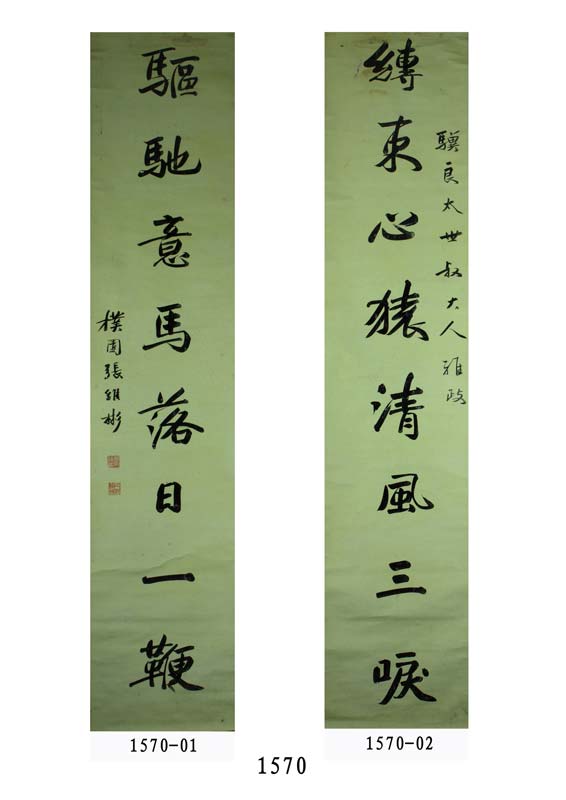 驥良太世叔大人雅政
縛束心猿清風三唳
驅馳意馬落日一鞭
樸園張維彬
1570-01
1570-02
1570